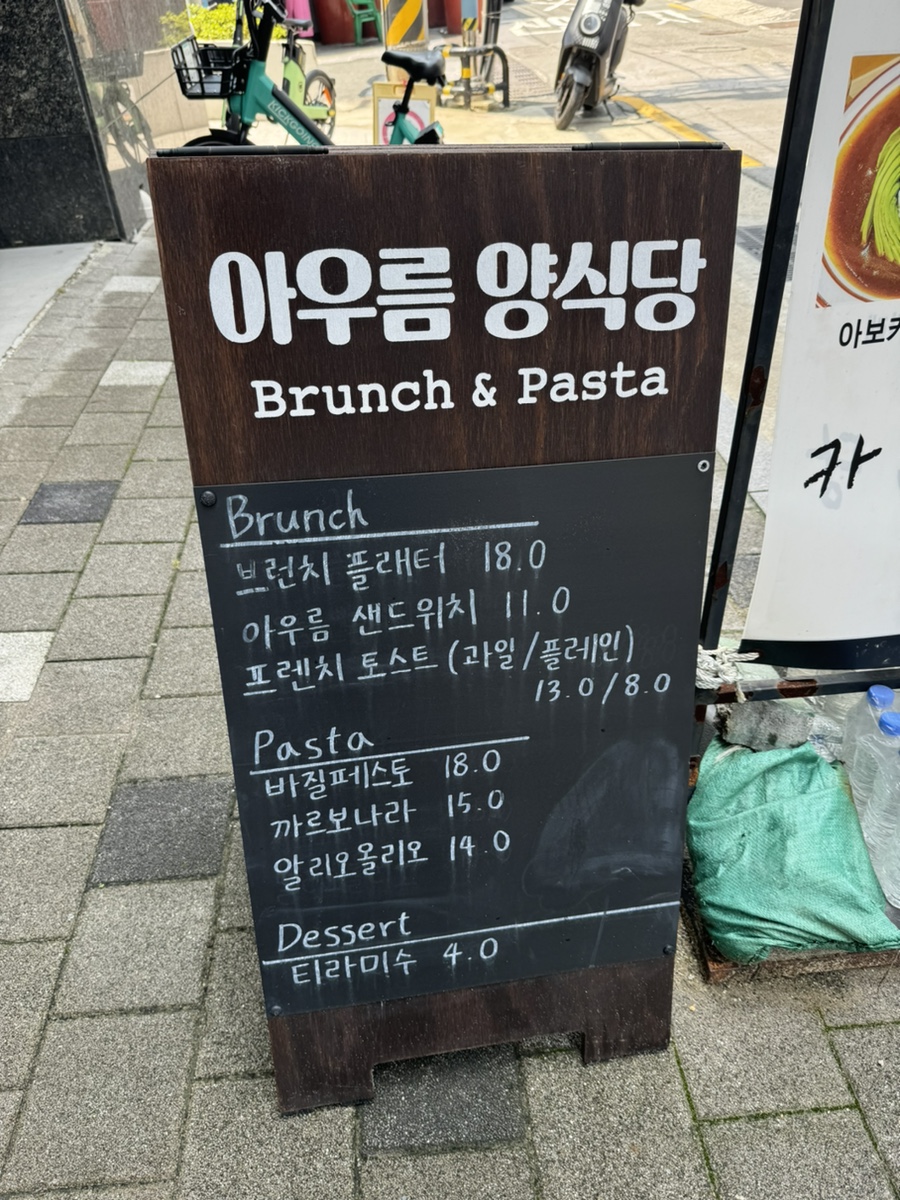 KICKGOING
아우름 양식당
Brunch & Pasta
Brunch
브런치 플래터 18.0
아우름 샌드위치 11.0
프렌치 토스트 (과일/플레인)
13.0/8.0
Pasta
바질페스토 18.0
까르보나라 15.0
알리오올리오 14.0
Dessert
티라미수 4.0
아보카
카